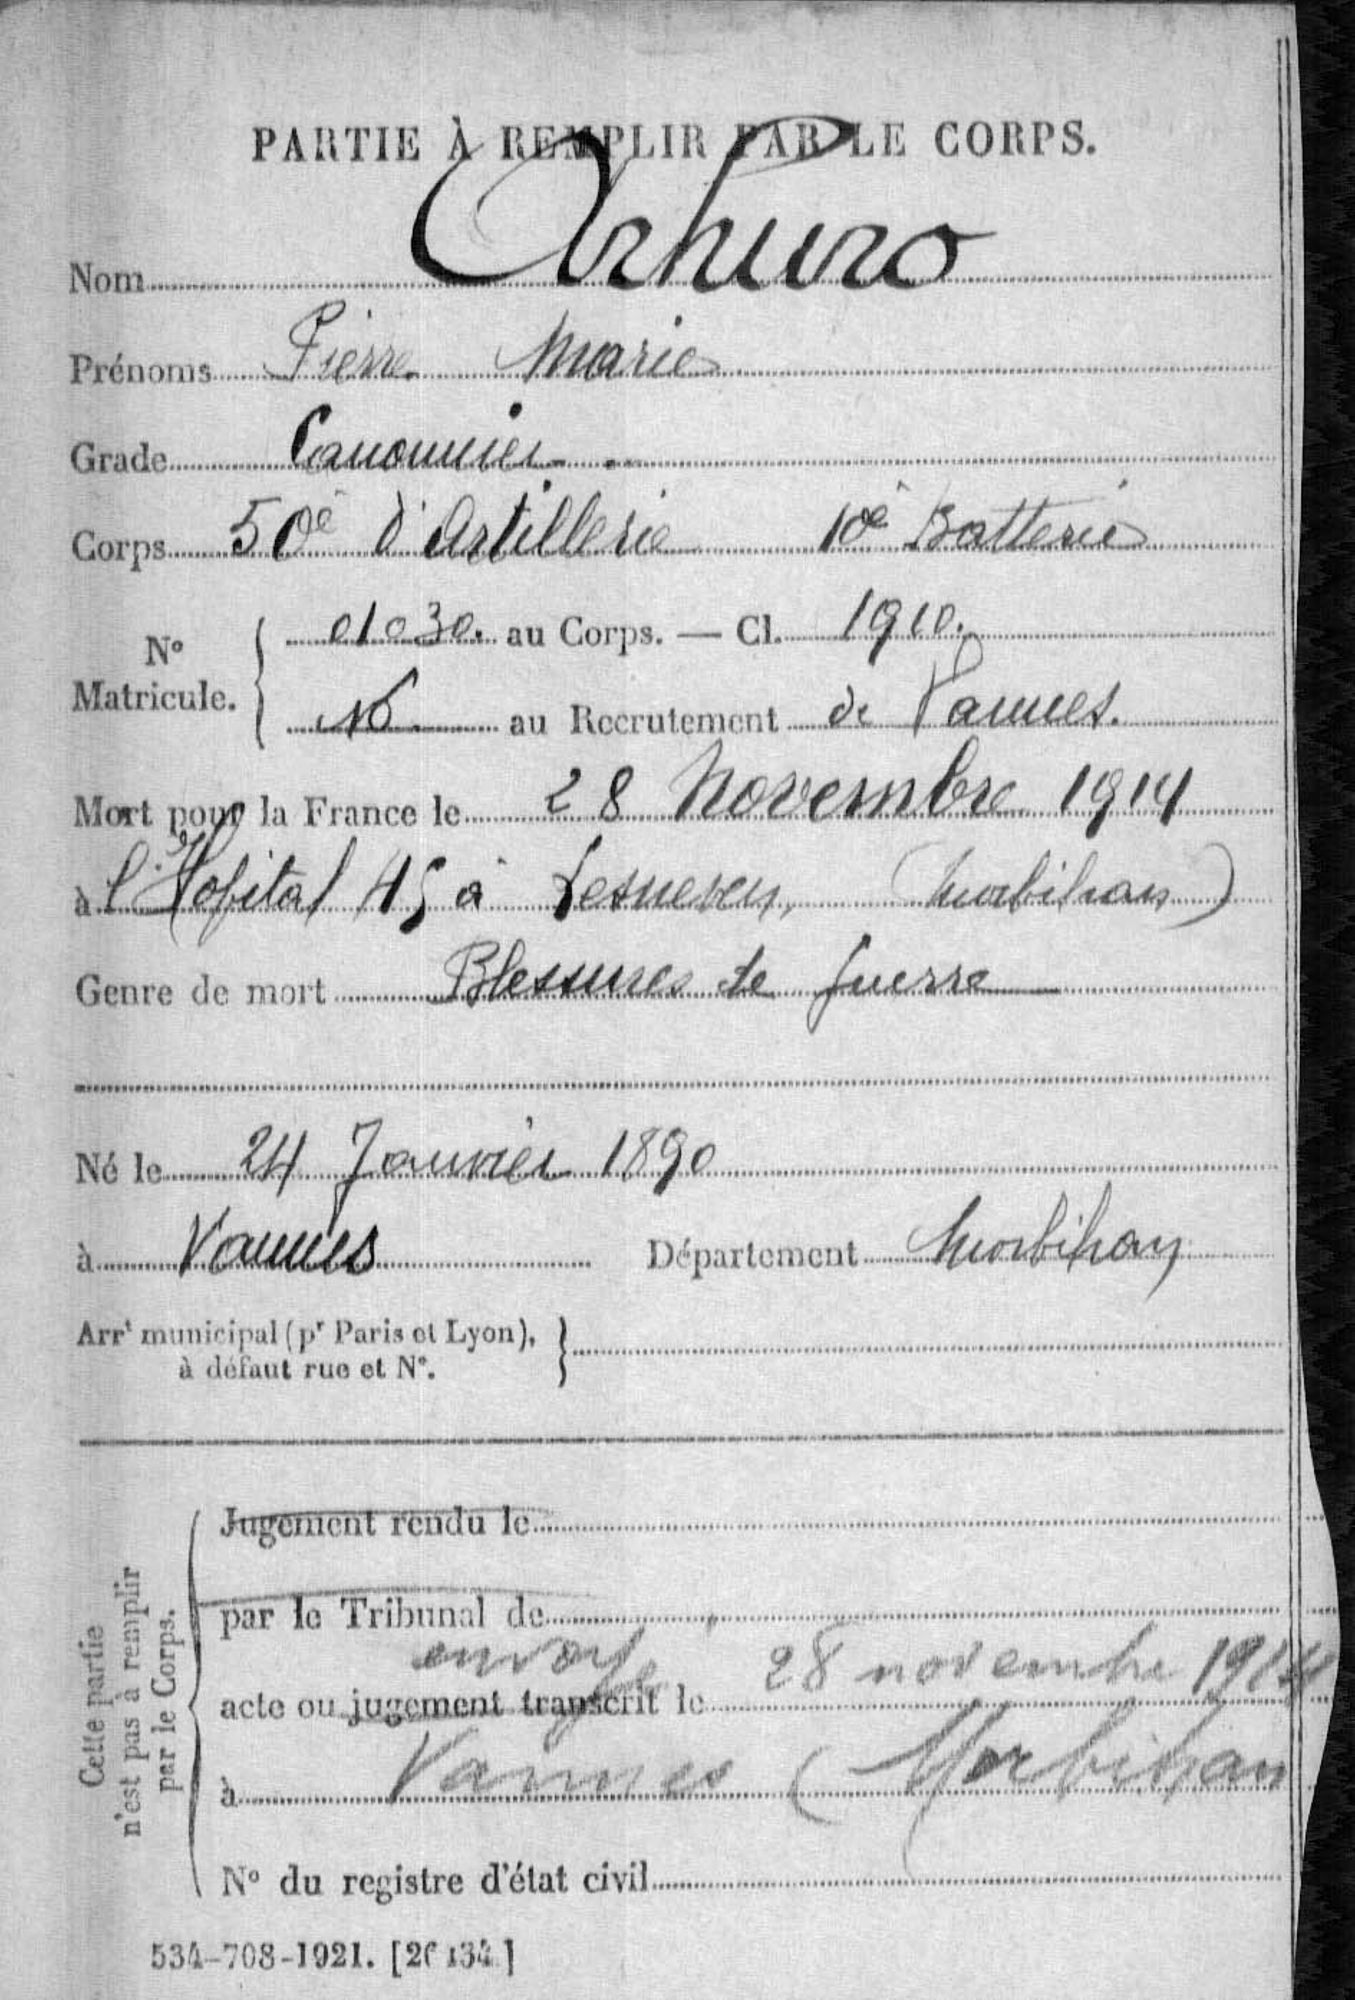 PARTIE À REMPLIR PAR LE CORPS.
Nom Orhuro
Prénoms Pierre Marie
Grade Canonnier
Corps 50e d'Artillerie 10e Batterie
N° Matricule. { 01030. au Corps. — Cl. 1910.
au Recrutement de Vannes.
Mort pour la France le 28 Novembre 1914
à l'Hopital 45 à Lesneven, (Morbihan)
Genre de mort Blessures de guerre
Né le 24 Janvier 1890
à Vannes Département Morbihan
Arrt municipal (pr Paris et Lyon), à défaut rue et N°. }
Cette partie n'est pas à remplir par le Corps.
Jugement rendu le
par le Tribunal de
envoyé 28 novembre 1914
acte ou jugement transcrit le
à Vannes (Morbihan
N° du registre d'état civil
534-708-1921. [26134]